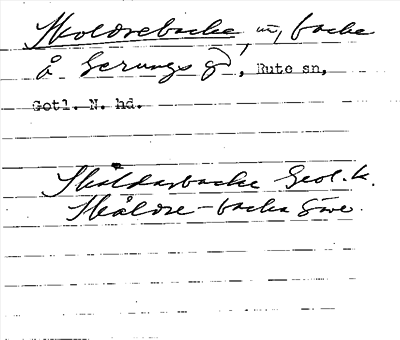 Skoldrebacke m, backe
å Gerungs g, Rute sn,
Gotl. N. hd.
Skåldarbacke Geol.k.
Skåldre-backa